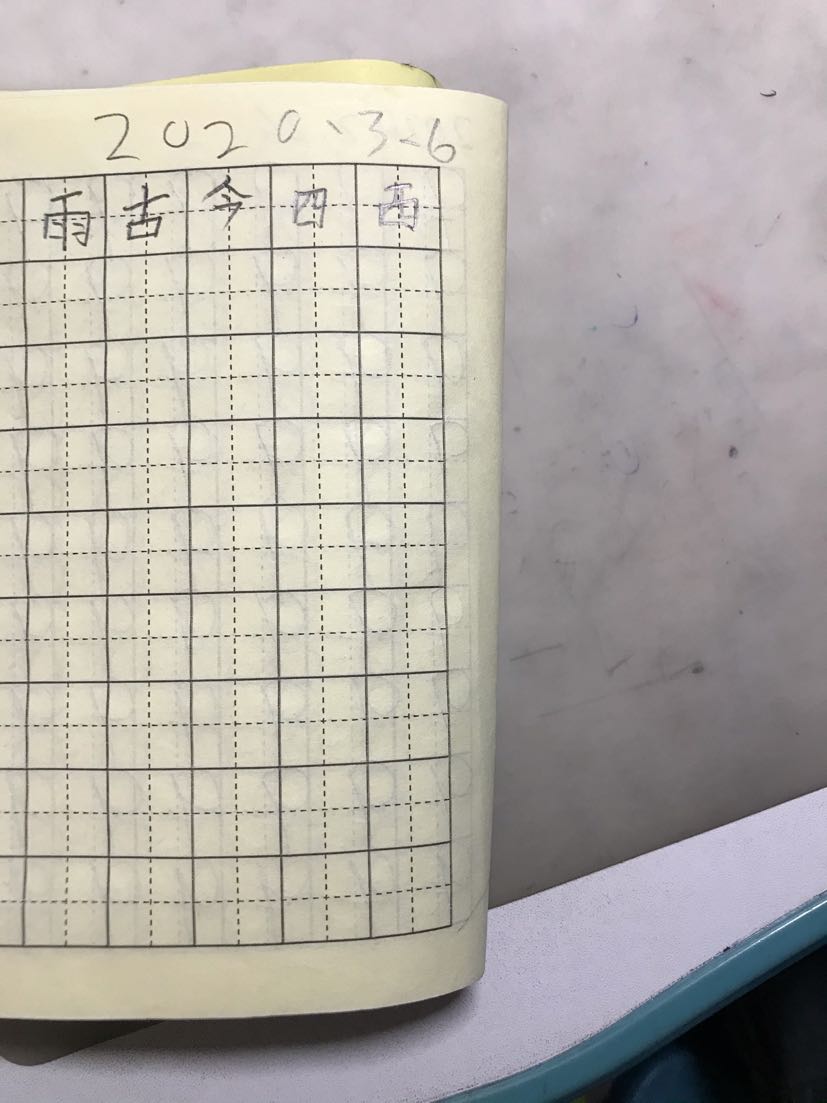 2020、3、6
雨古今四西